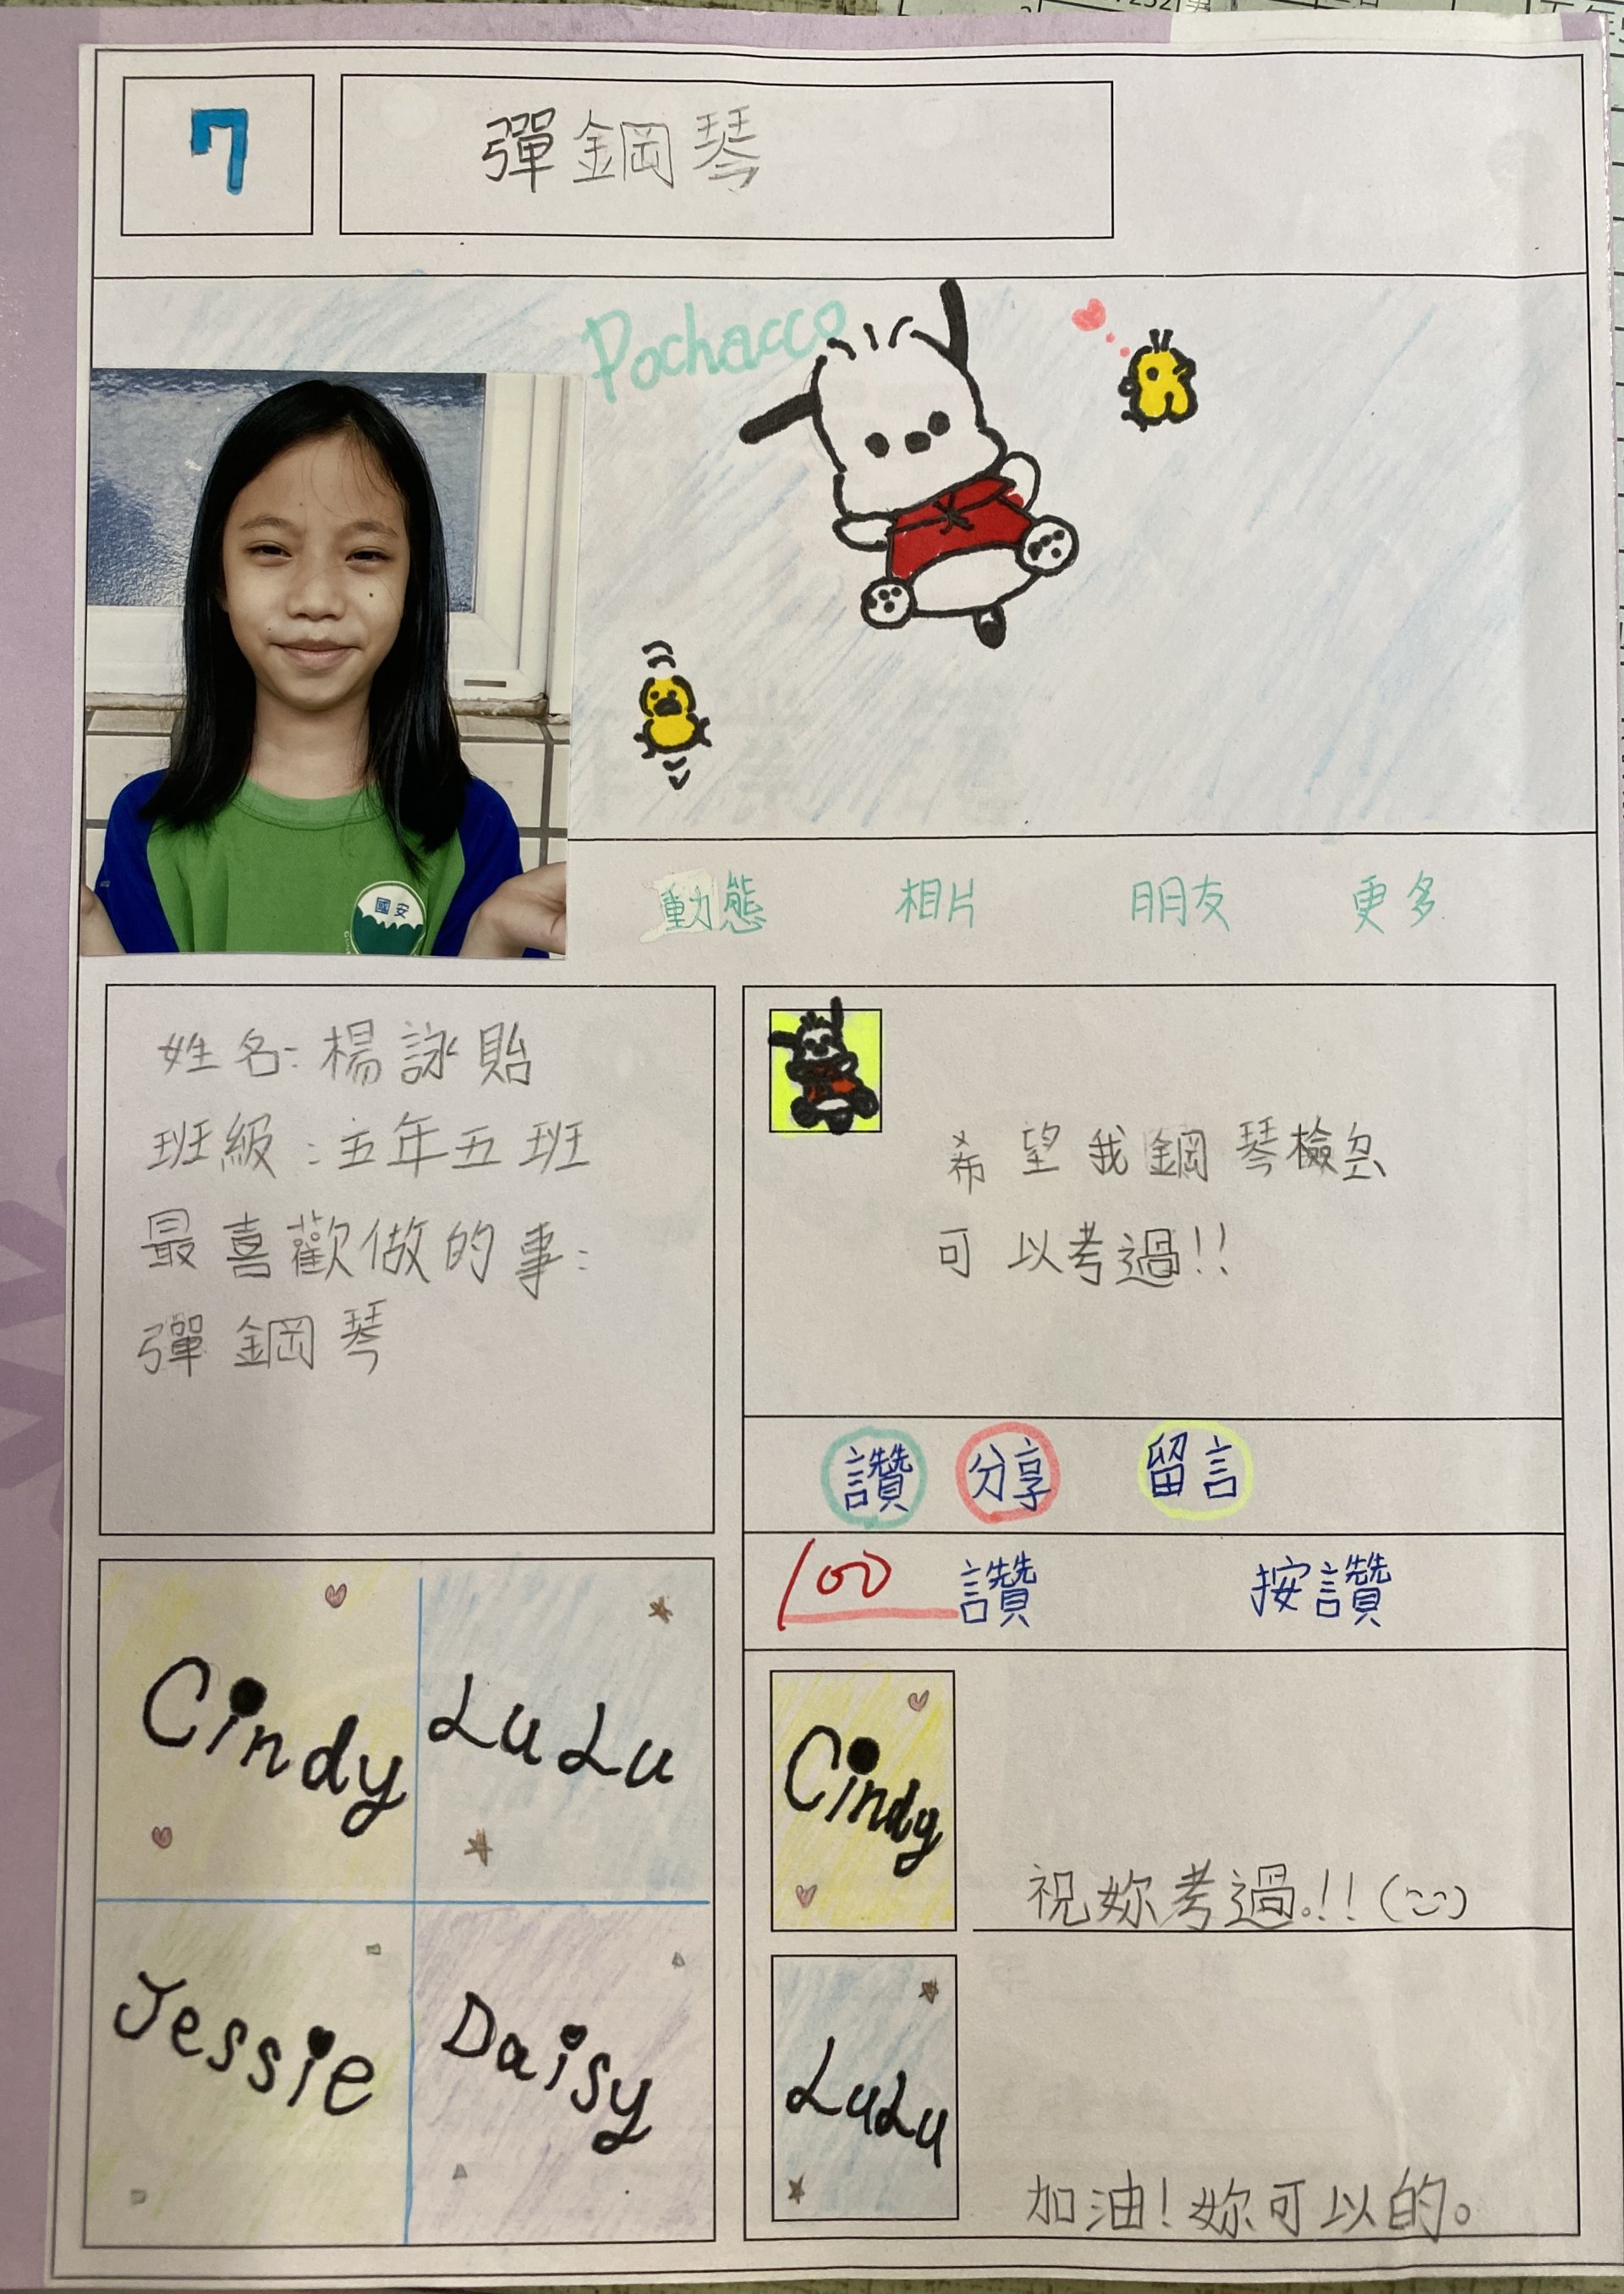 7
彈鋼琴
Pochacco
國安
動態 相片 朋友 更多
姓名:楊詠貽
班級:五年五班
最喜歡做的事:
彈鋼琴
希望我鋼琴檢
可以考過!!
讚 分享 留言
100 讚 按讚
Cindy
LuLu
Jessie
Daisy
Cindy
祝妳考過.!!(ニニ)
LuLu
加油!妳可以的。